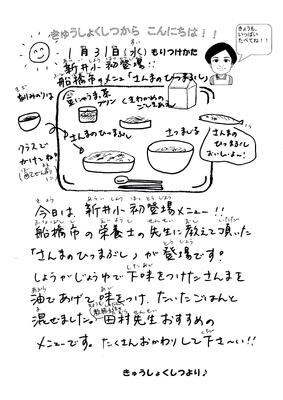 きゅうしょくしつから こんにちは!!
1月31日(水)もりつけカタ
きょうも、
いっぱい
たべてね!!
新井小 初登場!!
船橋市のメニュー「さんまのひつまぶし」
刻みのりは
クラスで
かけてね
プリン
くきわかめの
さんまのひつまぶし
さつまじる
さんまの
ひつまぶし
おいしいよー!
今日は、新井小初登場メニュー!!
船橋市の栄養士の先生に教えて頂いた
「さんまのひつまぶし」が登場です!
しょうがじょうゆで下味をつけたさんまを
油であげて、味をつけ、たいたごはんと
混ぜました。田村先生おすすめの
メニューです。たくさんおかわりして下さ〜い!!
きゅうしょくしつより♪